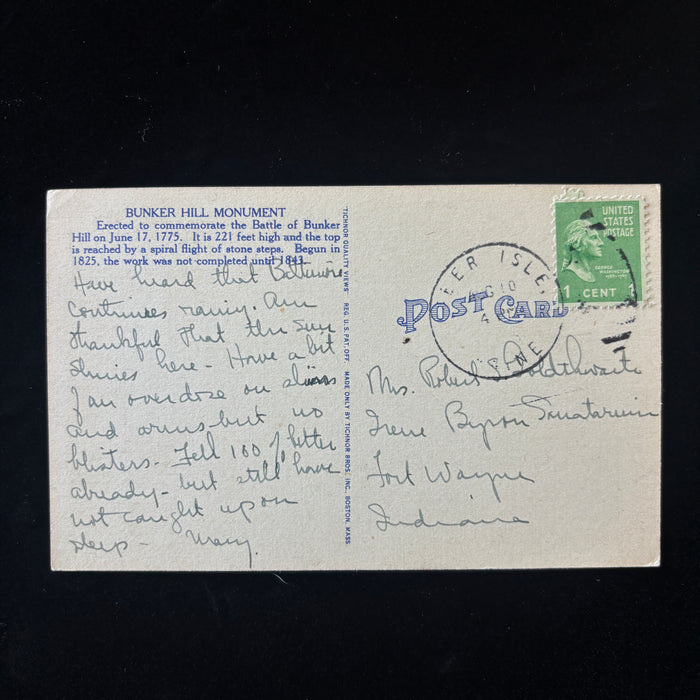 BUNKER HILL MONUMENT
Erected to commemorate the Battle of Bunker
Hill on June 17, 1775. It is 221 feet high and the top
is reached by a spiral flight of stone steps. Begun in
1825, the work was not completed until 1843.
Have heard that Baltimore
continues rainy. Am
thankful that the sun
shines here - Have a bit
of an overdose on
and arms but no
blisters. Feel 100% better
already - but still have
not caught up on
sleep - Mary.
TICHNOR QUALITY VIEWS REG. U.S. PAT. OFF. MADE ONLY BY TICHNOR BROS., INC., BOSTON, MASS.
POST CARD
EER ISLE
10
4
INE
UNITED
STATES
POSTAGE
GEORGE
WASHINGTON
1 CENT 1
Mrs. Robert Goldthwaite
Irene Byron Sanatorium
Fort Wayne
Indiana